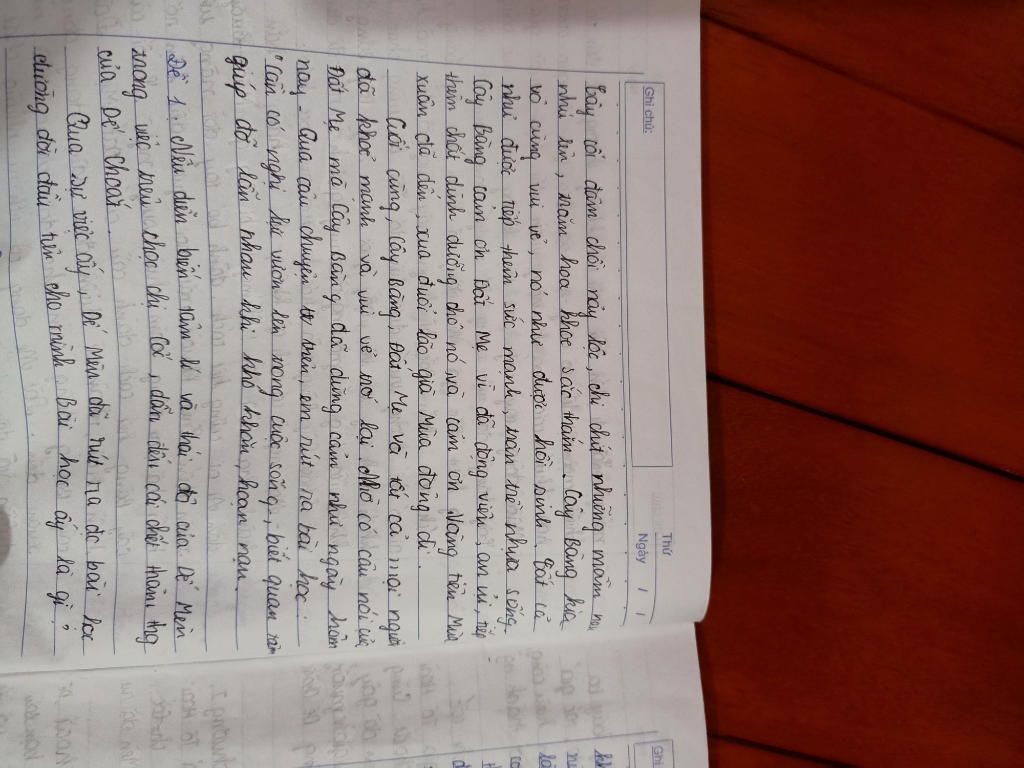 Ghi chú:
Thứ
Ngày / /
bây rồi đâm chồi nảy lộc, chi chít những mầm non
nhú lên, năm hoa khoe sắc thắm. Cây Bàng kia
vô cùng vui vẻ, nó như được hồi sinh. Tất cả
như được tiếp thêm sức mạnh tràn trề nhựa sống.
Cây Bàng cảm ơn Đất Mẹ vì đã động viên, an ủi, tiếp
thêm chất dinh dưỡng cho nó và cảm ơn Nàng tiên Mùa
xuân đã đến, xua đuổi lão già Mùa đông đi.
Cuối cùng, Cây Bàng, Đất Mẹ và tất cả mọi người
đã khoẻ mạnh và vui vẻ trở lại. Nhờ có câu nói của
Đất Mẹ mà Cây Bàng đã dũng cảm như ngày hôm
nay. Qua câu chuyện trên, em rút ra bài học:
"Cần có nghị lực vươn lên trong cuộc sống, biết quan tâm
giúp đỡ lẫn nhau khi khó khăn, hoạn nạn.
Đề 1: Nêu diễn biến tâm lí và thái độ của Dế Mèn
trong việc trêu chọc chị Cốc, dẫn đến cái chết thảm thg
của Dế Choắt.
Qua sự việc ấy, Dế Mèn đã rút ra đc bài học
đường đời đầu tiên cho mình. Bài học ấy là gì?
Ghi